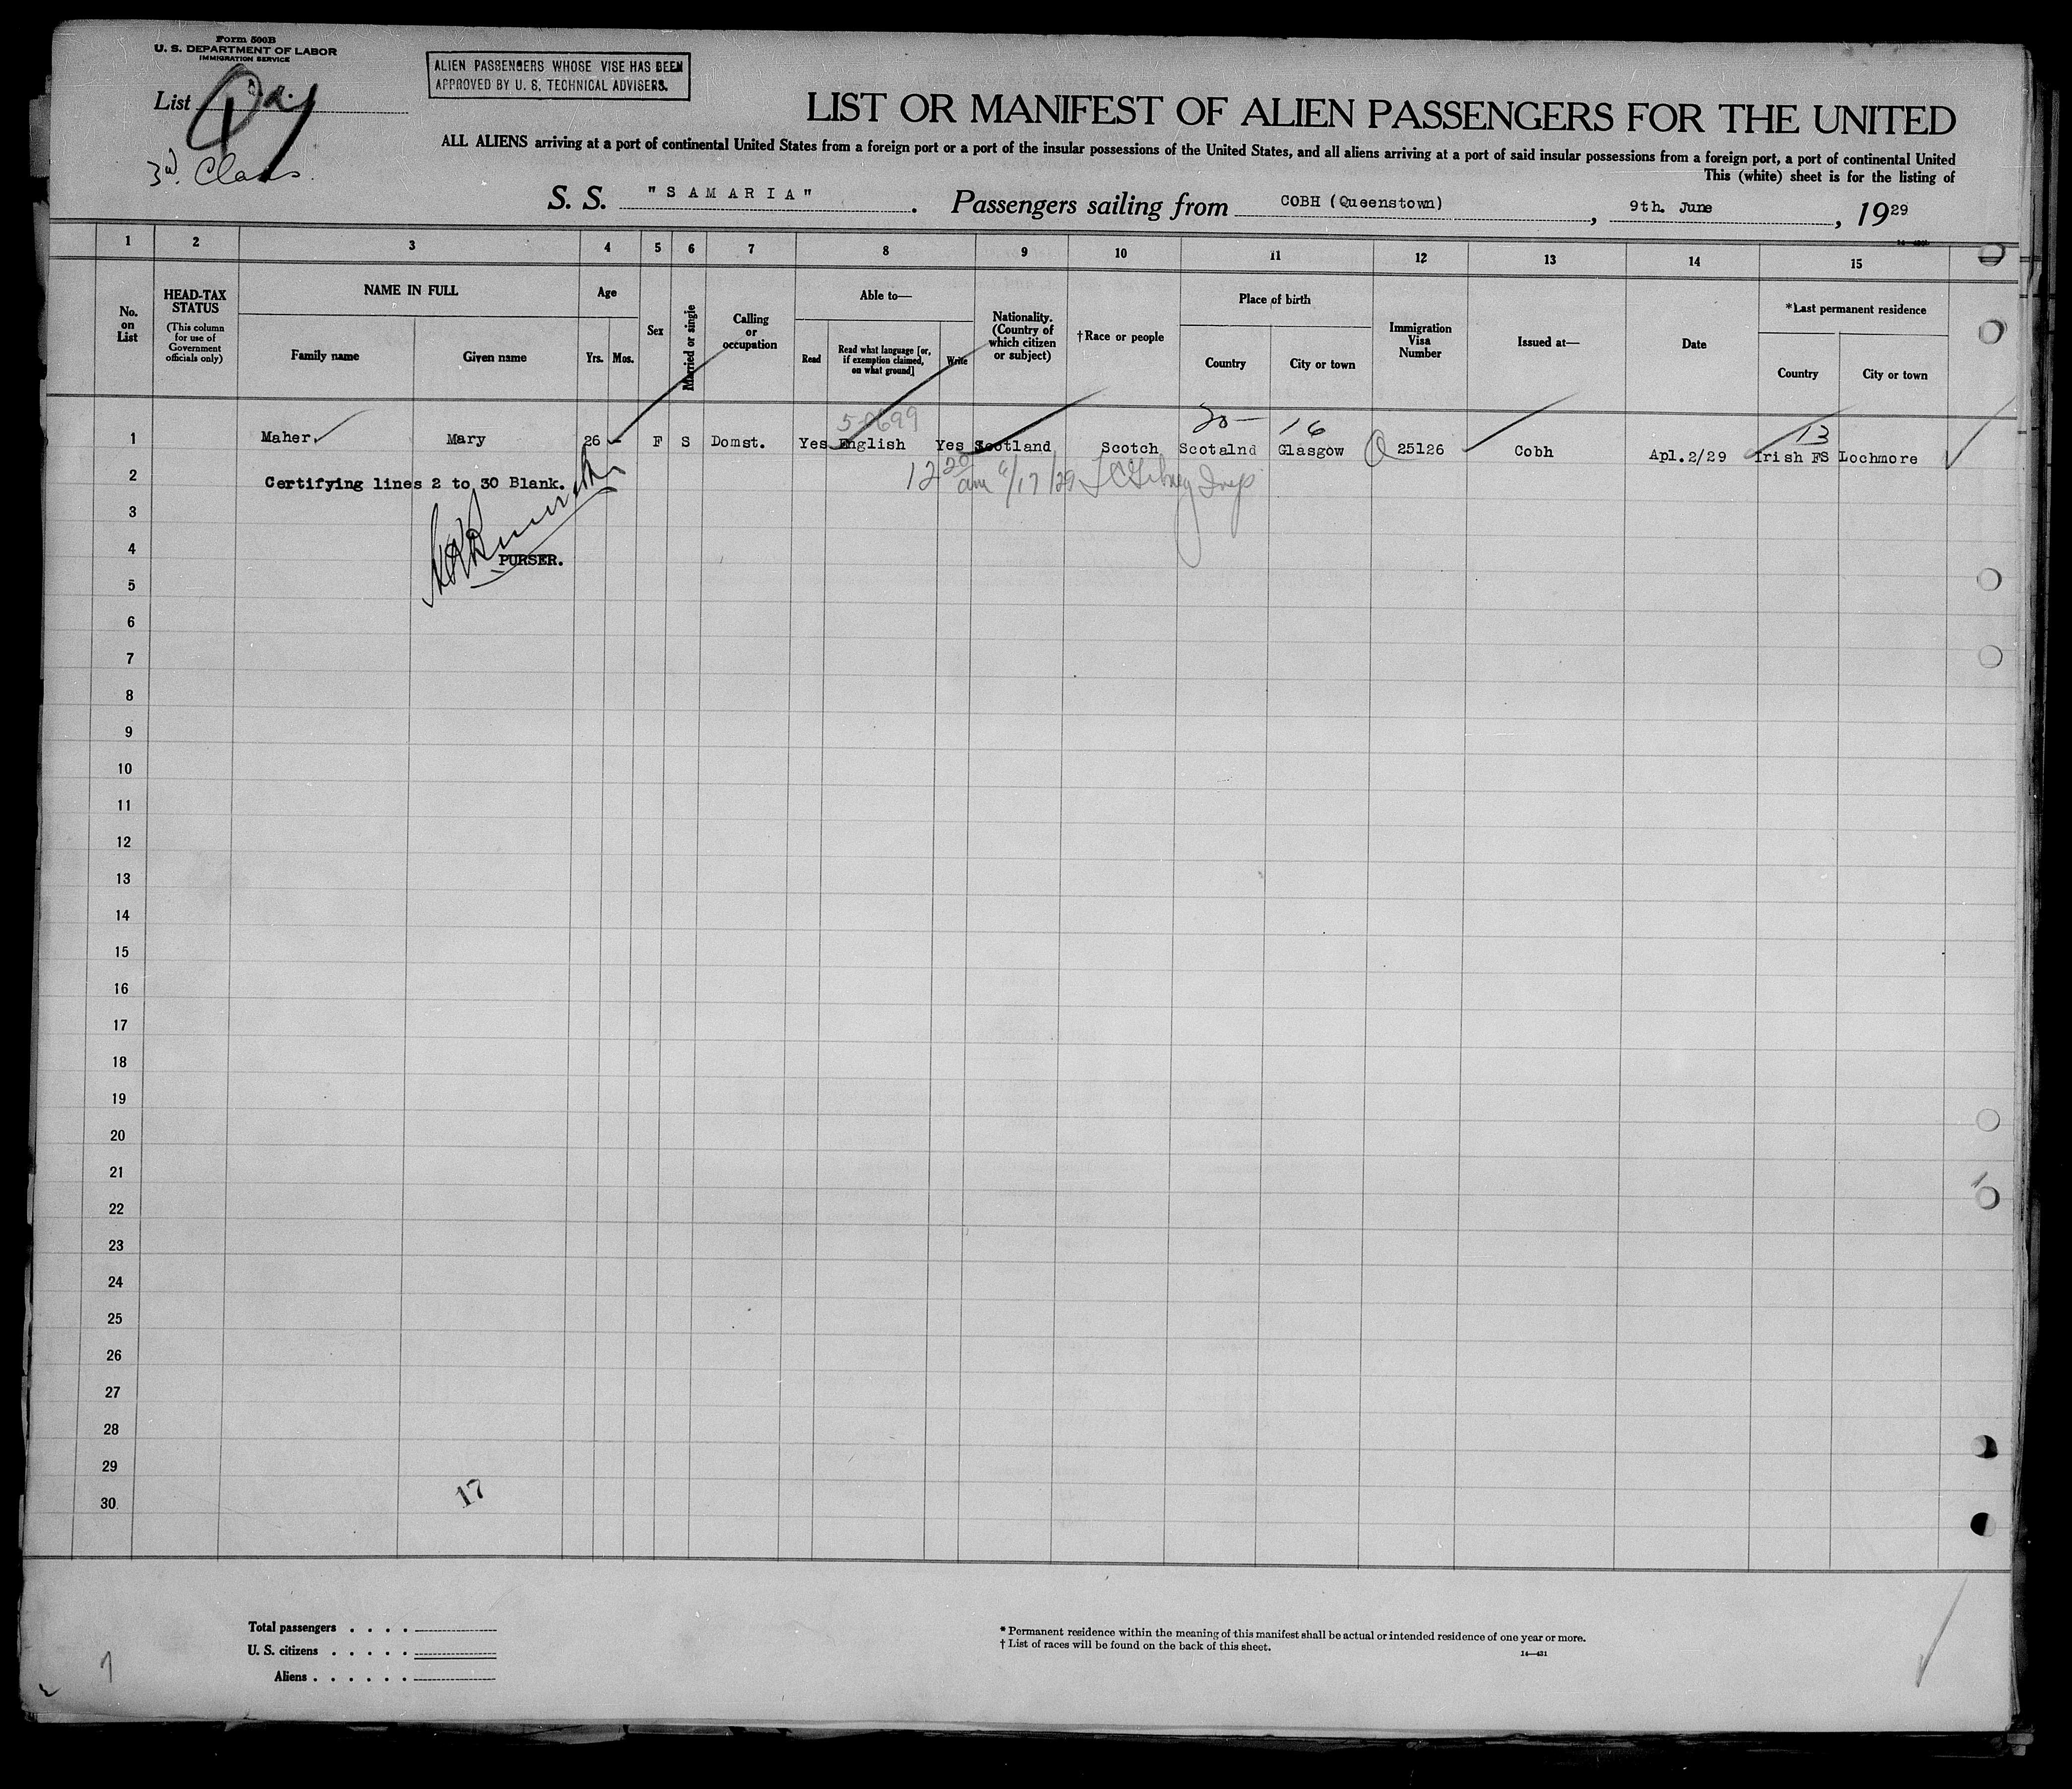 Form 500B
U. S. DEPARTMENT OF LABOR
IMMIGRATION SERVICE
List
3rd. Class.
ALIEN PASSENGERS WHOSE VISE HAS BEEN
APPROVED BY U. S. TECHNICAL ADVISERS.
LIST OR MANIFEST OF ALIEN PASSENGERS FOR THE UNITED
ALL ALIENS arriving at a port of continental United States from a foreign port or a port of the insular possessions of the United States, and all aliens arriving at a port of said insular possessions from a foreign port, a port of continental United
This (white) sheet is for the listing of
S. S. "SAMARIA". Passengers sailing from COBH (Queenstown), 9th. June, 1929
1 2 3 4 5 6 7 8 9 10 11 12 13 14 15
No. on List
HEAD-TAX STATUS
(This column for use of Government officials only)
NAME IN FULL
Family name
Given name
Age
Yrs. Mos.
Sex
Married or single
Calling or occupation
Able to—
Read
Read what language [or, if exemption claimed, on what ground]
Write
Nationality. (Country of which citizen or subject)
†Race or people
Place of birth
Country
City or town
Immigration Visa Number
Issued at—
Date
*Last permanent residence
Country
City or town
20— 16 13
1 Maher Mary 26 - F S Domst. Yes English Yes Scotland Scotch Scotalnd Glasgow 25126 Cobh Apl.2/29 Irish FS Lochmore
2 Certifying lines 2 to 30 Blank. 12 20 am 6/17/29
3
4
PURSER.
5
6
7
8
9
10
11
12
13
14
15
16
17
18
19
20
21
22
23
24
25
26
27
28
29
17
30
Total passengers . . . .
U. S. citizens . . . . .
Aliens . . . . . .
* Permanent residence within the meaning of this manifest shall be actual or intended residence of one year or more.
† List of races will be found on the back of this sheet.
14—431